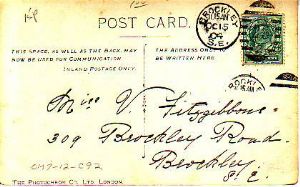 POST CARD.
THIS SPACE, AS WELL AS THE BACK, MAY
NOW BE USED FOR COMMUNICATION
INLAND POSTAGE ONLY.
THE ADDRESS ONLY TO
BE WRITTEN HERE.
BROCKLEY
OC 15
04
S.E.
BROCKLEY
Miss V. Fitzgibbons
309 Brockley Road.
Brockley
S.E.
CM7-12-C92
THE PHOTOCHROM CO. LTD. LONDON.